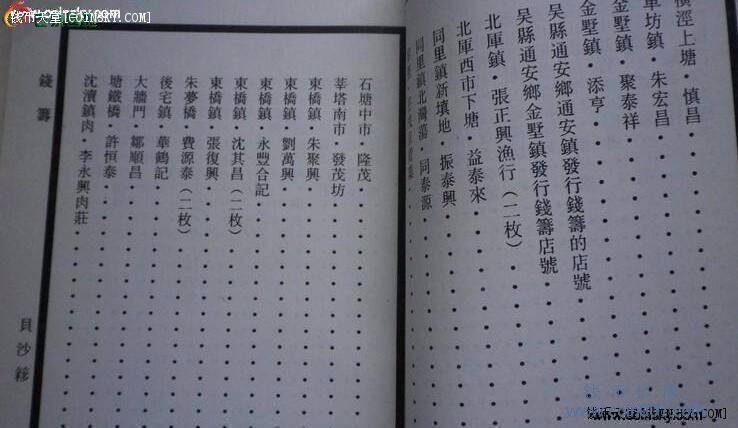 钱币天堂[COINSKY.COM]
橫涇上塘·慎昌
車坊鎮·朱宏昌
金墅鎮·聚泰祥
金墅鎮·添亨
吴縣通安鄉通安鎮發行錢籌的店號
吴縣通安鄉金墅鎮發行錢籌店號
北厙鎮·張正興漁行(二枚)
北厙西市下塘·益泰來
同里鎮新填地·振泰興
同里鎮北灣蕩·同泰源
石塘中市·隆茂
莘塔南市·發茂坊
東橋鎮·朱聚興
東橋鎮·劉萬興
東橋鎮·永豐合記
東橋鎮·沈其昌(二枚)
東橋鎮·張復興
朱夢橋·費源泰(二枚)
後宅鎮·華鶴記
大牆門·鄒順昌
塘鐵橋·許恒泰
沈瀆鎮肉·李永興肉莊
錢籌
貝沙
[COINSKY.COM]